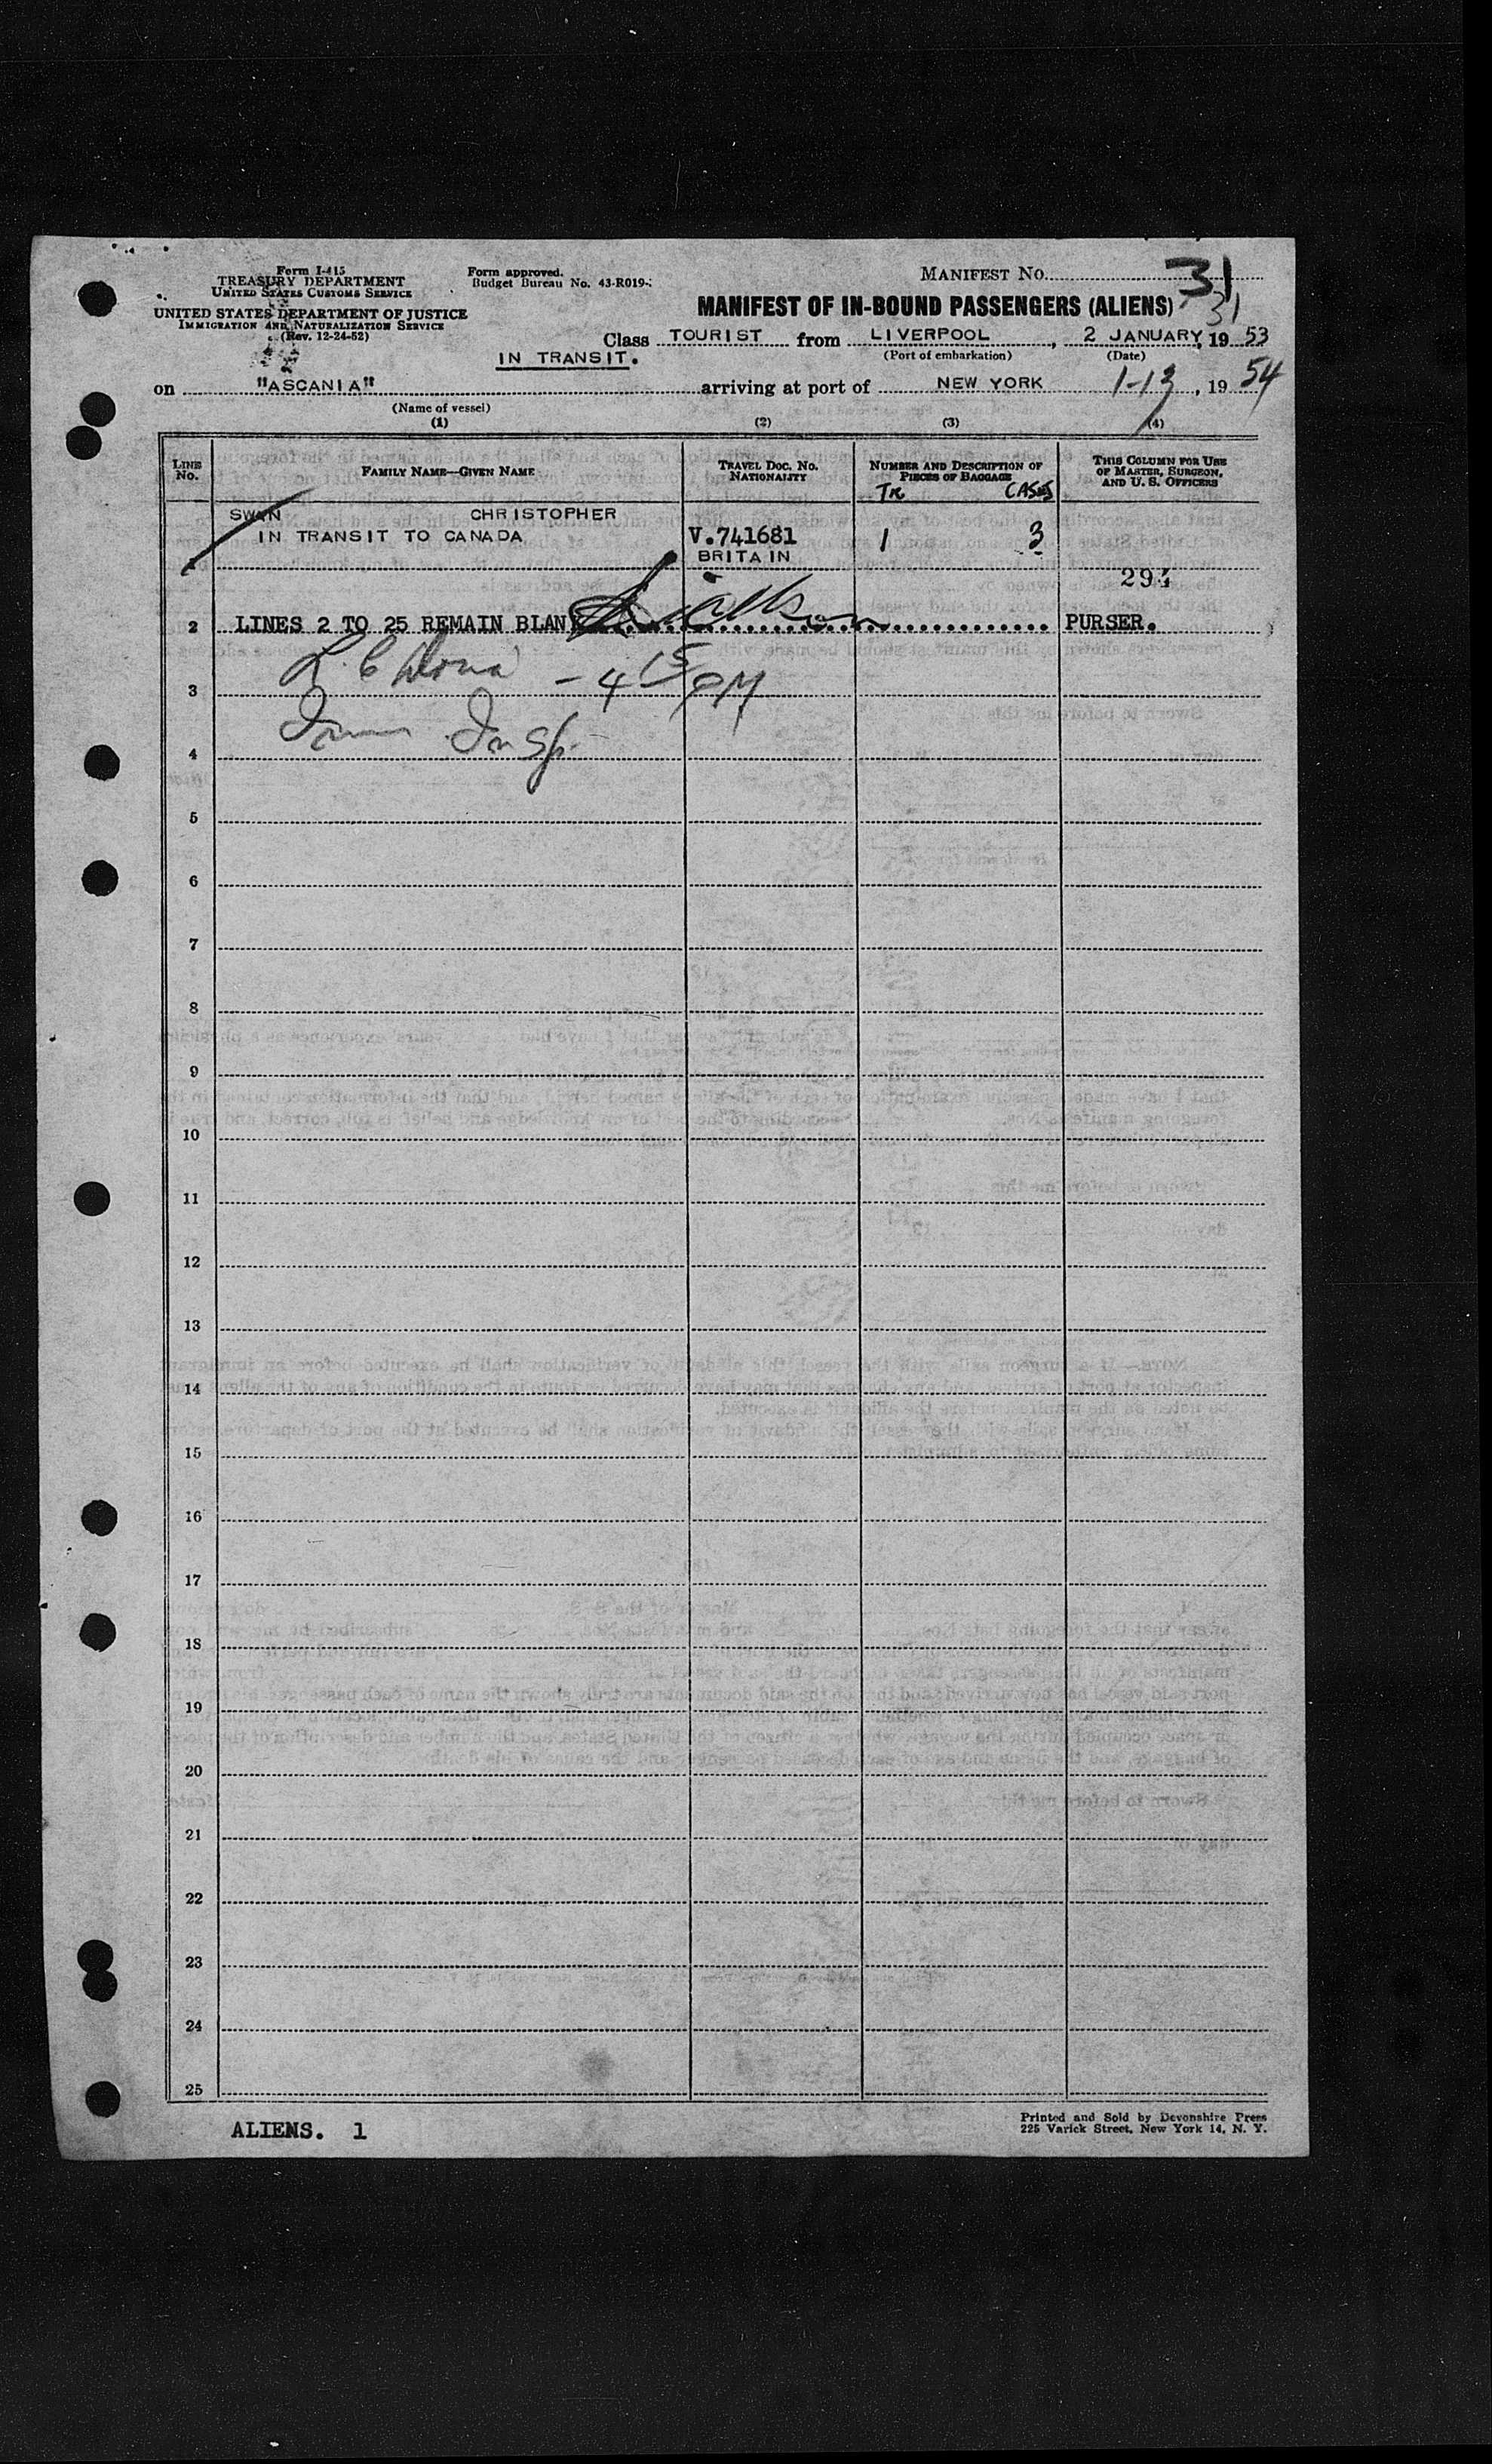 Form I-415
TREASURY DEPARTMENT
UNITED STATES CUSTOMS SERVICE
UNITED STATES DEPARTMENT OF JUSTICE
IMMIGRATION AND NATURALIZATION SERVICE
(Rev. 12-24-52)
Form approved.
Budget Bureau No. 43-R019-
MANIFEST NO. 31
MANIFEST OF IN-BOUND PASSENGERS (ALIENS) 31
Class TOURIST from LIVERPOOL, 2 JANUARY, 19 53
(Port of embarkation) (Date)
IN TRANSIT.
on "ASCANIA" arriving at port of NEW YORK 1-13, 19 54
(Name of vessel)
(1) (2) (3) (4)
LINE NO. FAMILY NAME—GIVEN NAME TRAVEL DOC. NO. NATIONALITY NUMBER AND DESCRIPTION OF PIECES OF BAGGAGE THIS COLUMN FOR USE OF MASTER, SURGEON, AND U. S. OFFICERS
TR CASES
SWAN CHRISTOPHER
IN TRANSIT TO CANADA V.741681 1 3
1 BRITAIN
293
2 LINES 2 TO 25 REMAIN BLANK PURSER.
3 - 4 15 PM
4 Imm Insp.
5
6
7
8
9
10
11
12
13
14
15
16
17
18
19
20
21
22
23
24
25
ALIENS. 1
Printed and Sold by Devonshire Press
225 Varick Street, New York 14, N. Y.